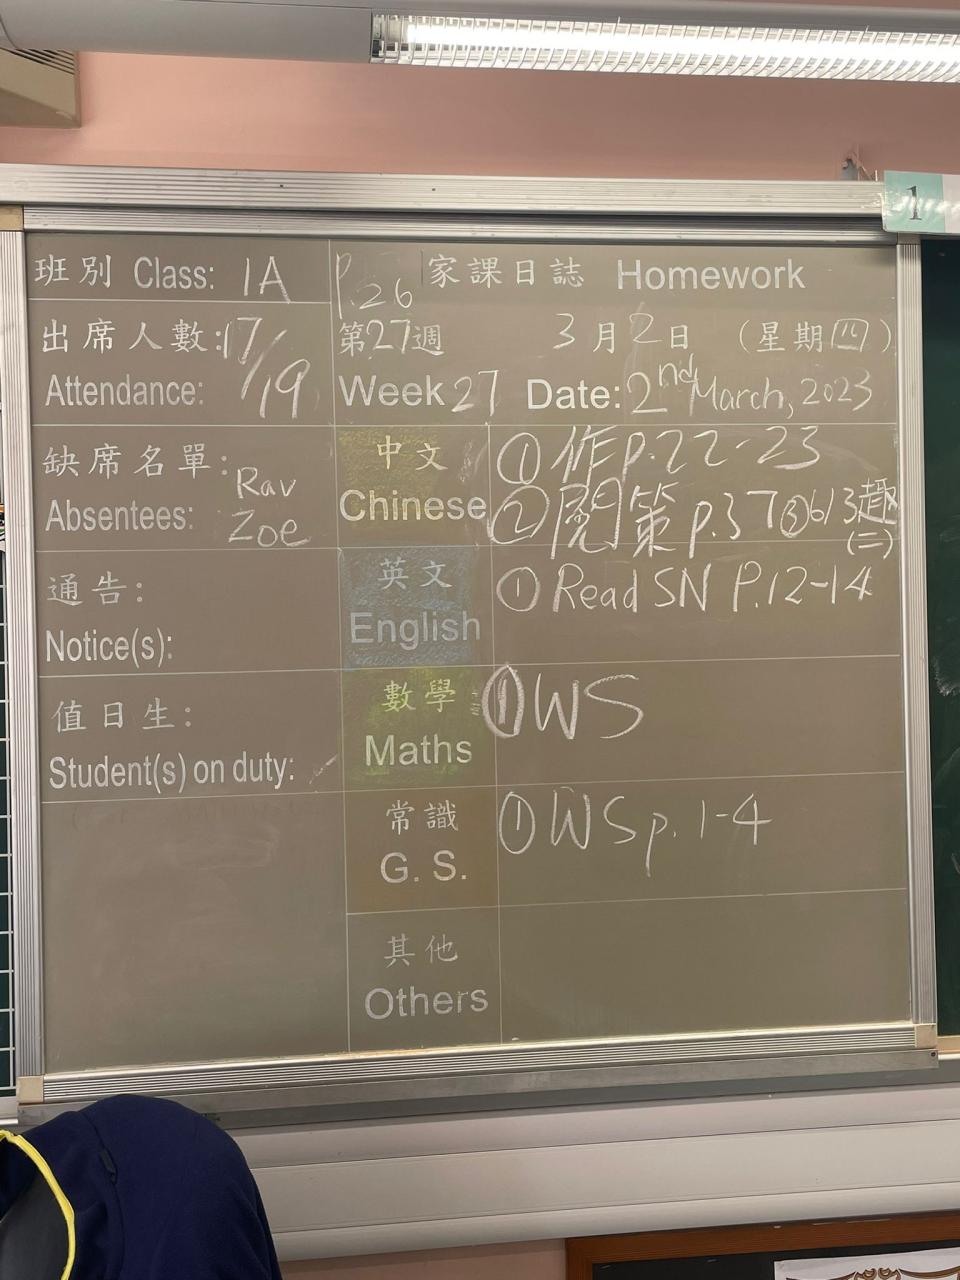 1
班別 Class: 1A
P.26
家課日誌 Homework
出席人數: 17/19
Attendance:
第27週 3月2日 (星期四)
Week 27 Date: 2nd March, 2023
缺席名單:
Absentees: Rav
Zoe
中文
Chinese
① 作 p.22-23
② 閱策 p.37 ③ 6/3 趣(二)
通告:
Notice(s):
英文
English
① Read SN P.12-14
值日生:
Student(s) on duty:
數學
Maths
① WS
常識
G. S.
① WS p.1-4
其他
Others